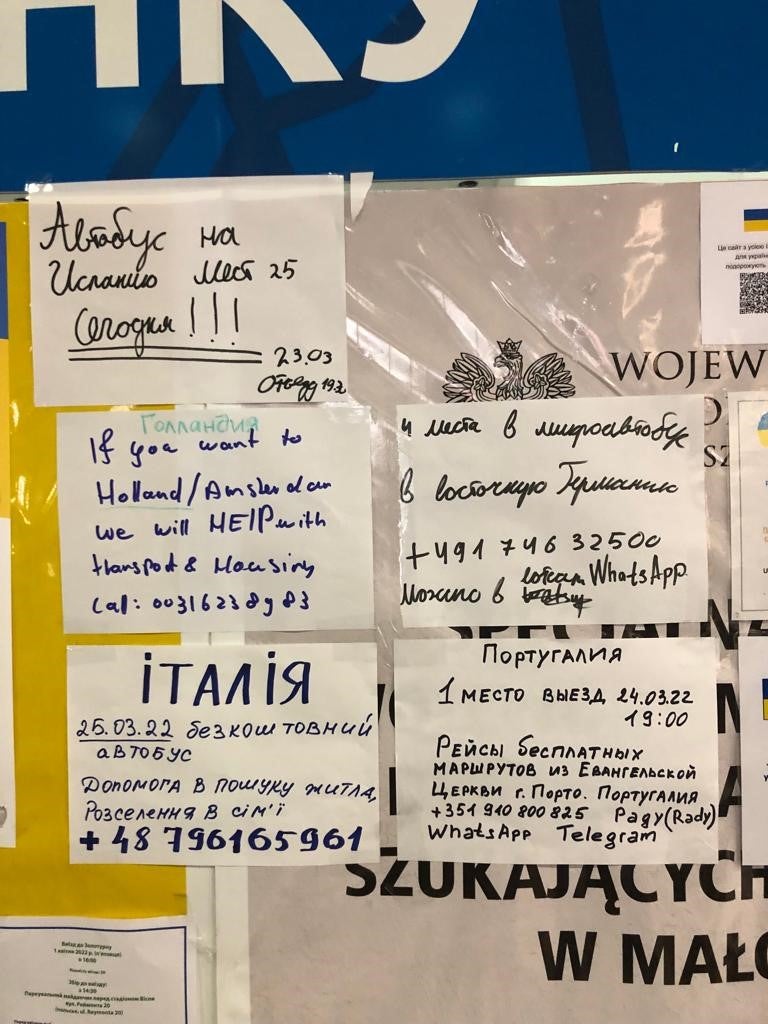 НКУ
Автобус на
Испанию мест 25
Сегодня !!!
23.03
Отъезд 19
Це сайт з усією і
для україн
подорожують
WOJEW
Голландия
If you want to
Holland/Amsterdam
we will HElP with
transport & Housing
Cal: 0031623 8 9 83
4 места в микроавтобус
в восточную Германию
+491 746 32500
можно в WhatsApp
SPECJALNA
ІТАЛІЯ
25.03.22 безкоштовний
автобус
Допомога в пошуку житла,
Розселення в сім'ї
+48 796165961
Португалия
1 место выезд 24.03.22
19:00
Рейсы бесплатных
маршрутов из Евангельской
Церкви г. Порто. Португалия
+351 910 800 825 Раду (Rady)
WhatsApp Telegram
SZUKAJĄCYCH
W MAŁO
Виїзд до Золотурну
1 квітня 2022 р. (п'ятниця)
о 16:00
Збір до виїзду:
з 14:30
Паркувальний майданчик перед стадіоном Вісли
вул. Реймонта 20
(польськ. ul. Reymonta 20)